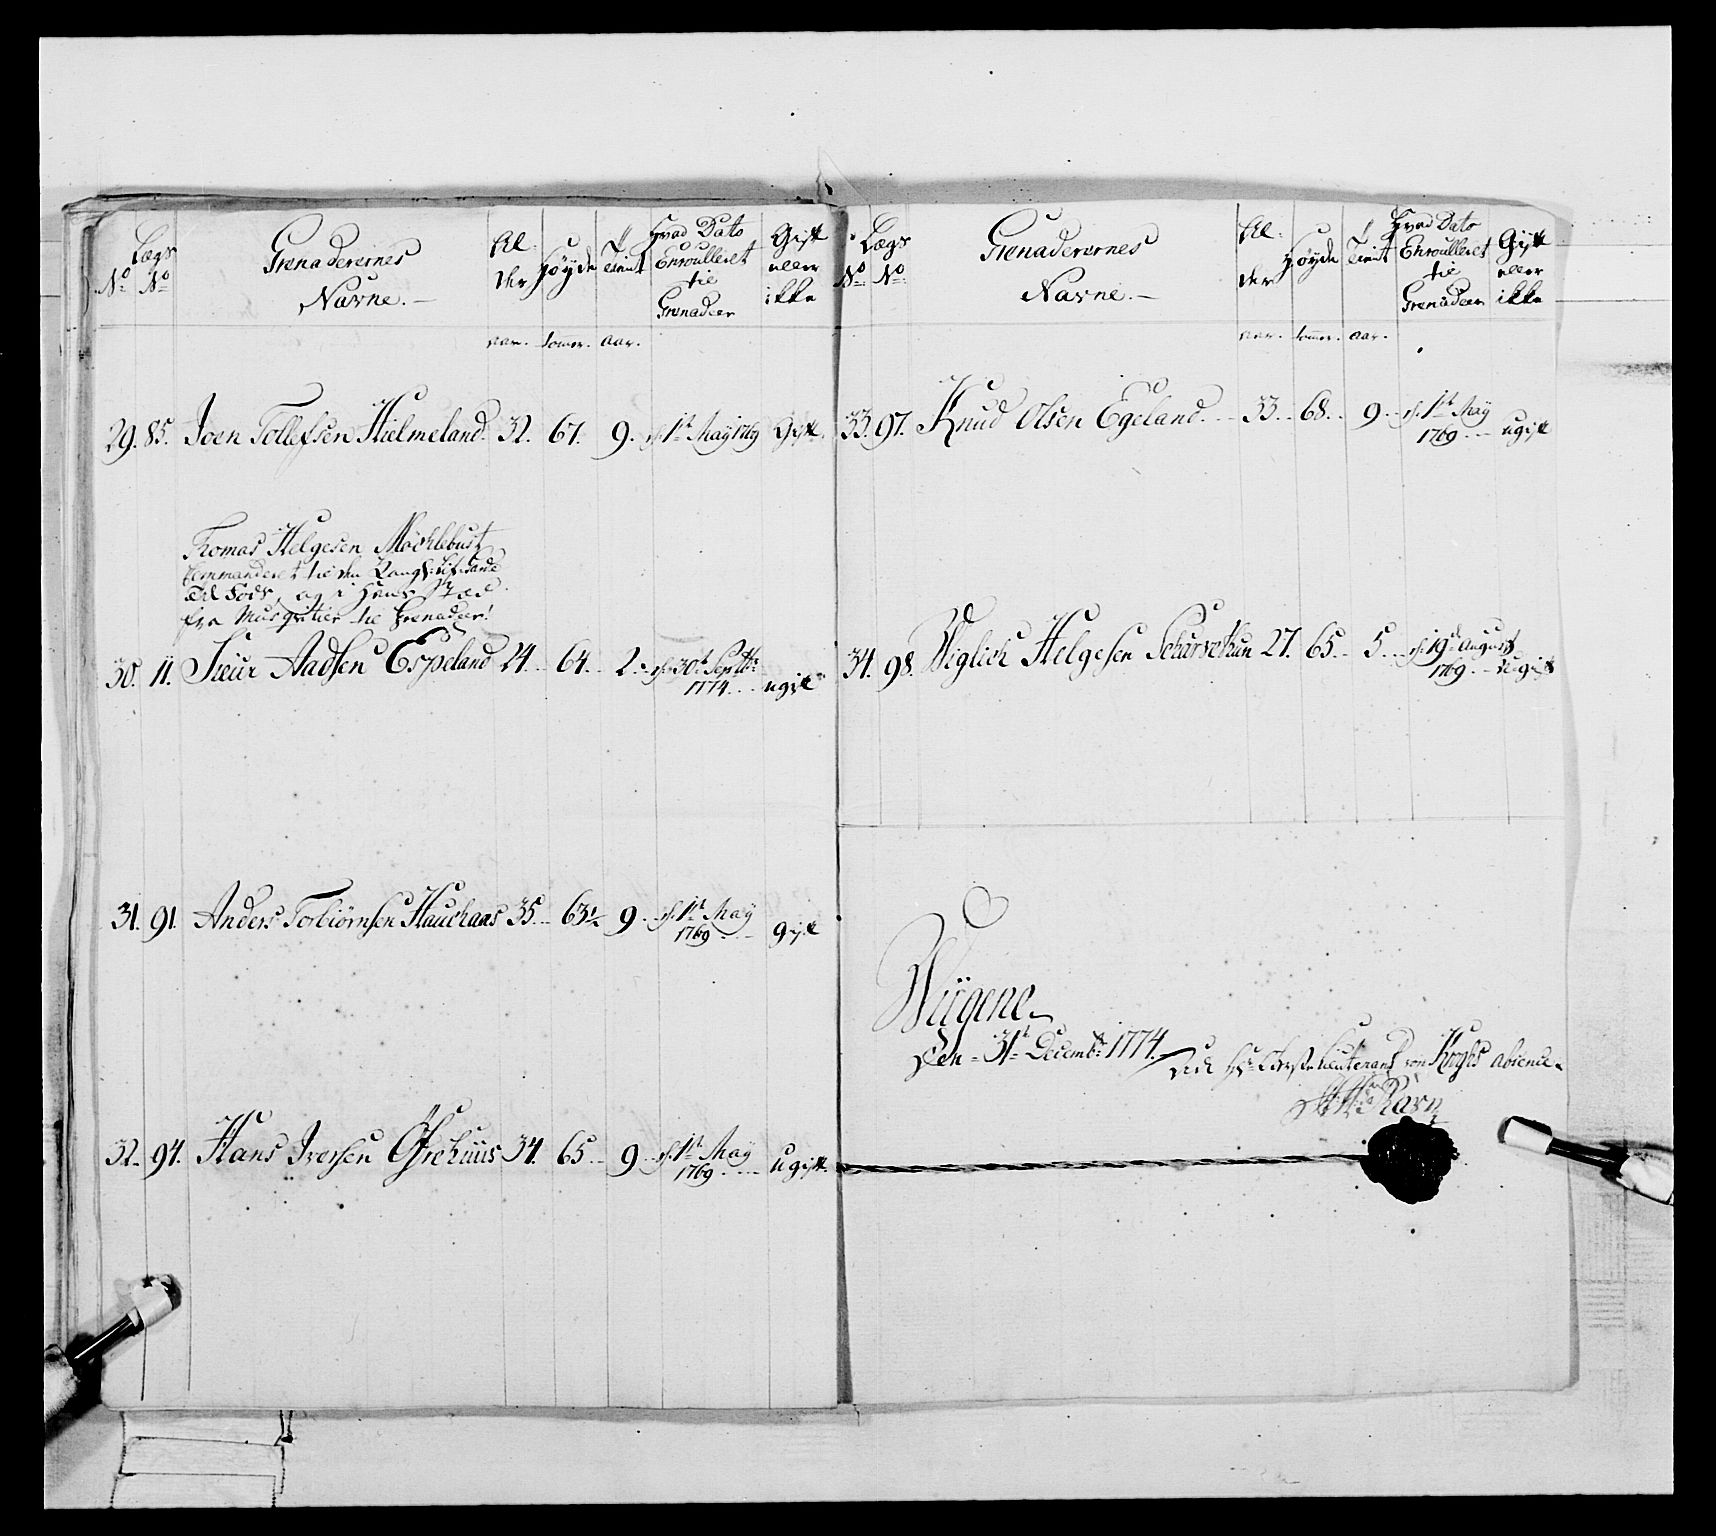 No Lægs No Grenaderernes Navne. Al der Höÿde Tient Hvad Dato Enroulleret til Grenadeer Gift eller ikke
aar. tommer. aar.
29. 85. Joen Tollefsen Hielmeland. 32. 67. 9. d. 1ste Maÿ 1769 Gift.
Tomas Helgesen Möchlebust
Commanderet til den Kongl: Lif-Garde
til Fods, og i Hans Stæd
fra Musqvetier til Grenadeer!
30. 11. Siur Aadsen Espeland 24. 64. 2. d. 30te Septbr: 1774. ugift
31. 91. Anders Torbiörnsen Hauchaas 35. 63½ 9. d. 1ste Maÿ 1769. gift
32. 94. Hans Iversen Ofrehuus 34. 65. 9. d. 1ste Maÿ 1769. ugift.
No Lægs No Grenaderernes Navne. Al der Höÿde Tient Hvad Dato Enroulleret til Grenadeer Gift eller ikke
aar. tommer. aar.
33. 97. Knud Olsen Egeland. 33. 68. 9. d. 1ste Maÿ 1769. ugift
34. 98. Wiglich Helgesen 27. 65. 5. d. 19de August 1769. Ugift
Wiigene
den 31te Decembr: 1774.
Udi Hr: Oberstlieutenant von Krghs absence.
Ravn